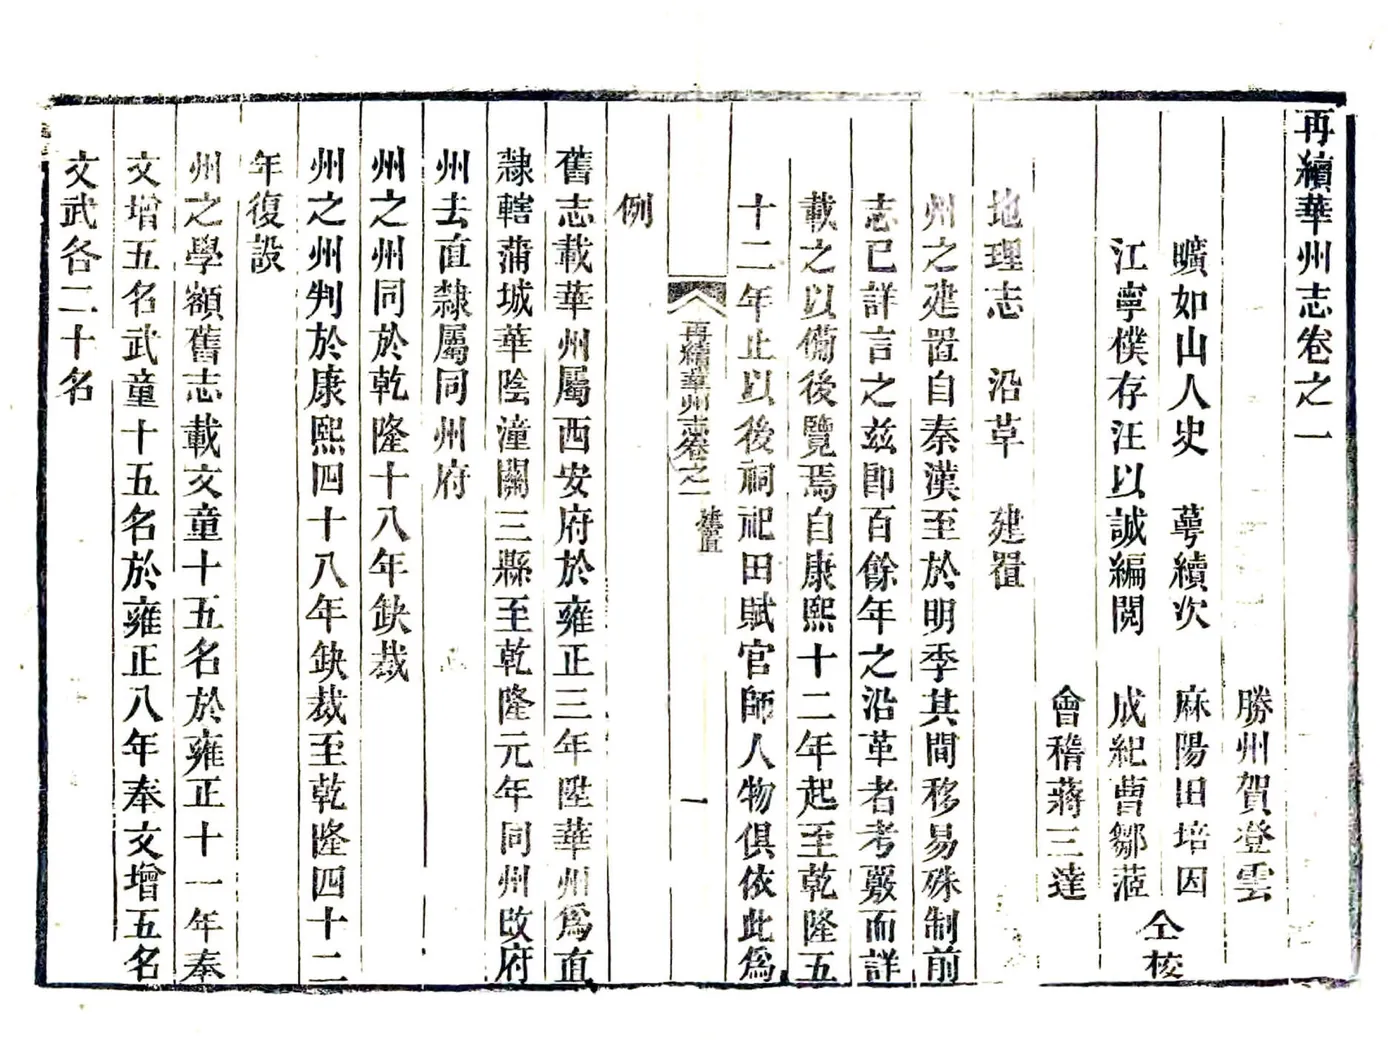 再續華州志卷之一
勝州賀登雲
曠如山人史　蕚續次　麻陽田培因
江寧樸存汪以誠編閱　成紀曹鄒蒞　仝校
會稽蔣三達
地理志　沿革　建置
州之建置自秦漢至於明季其間移易殊制前
志已詳言之茲即百餘年之沿革者考覈而詳
載之以備後覽焉自康熙十二年起至乾隆五
十二年止以後祠祀田賦官師人物俱依此為
再續華州志卷之一　建置　一
例
舊志載華州屬西安府於雍正三年陞華州為直
隸轄蒲城華陰潼關三縣至乾隆元年同州改府
州去直隸屬同州府
州之州同於乾隆十八年缺裁
州之州判於康熙四十八年缺裁至乾隆四十二
年復設
州之學額舊志載文童十五名於雍正十一年奉
文增五名武童十五名於雍正八年奉文增五名
文武各二十名